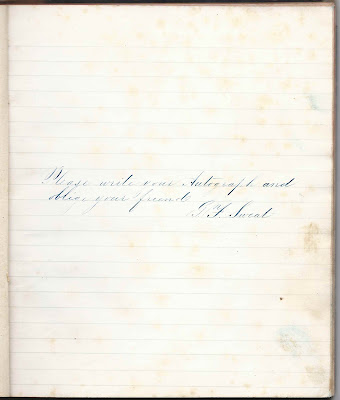 Please write your Autograph and
oblige your friend
G F Sweat